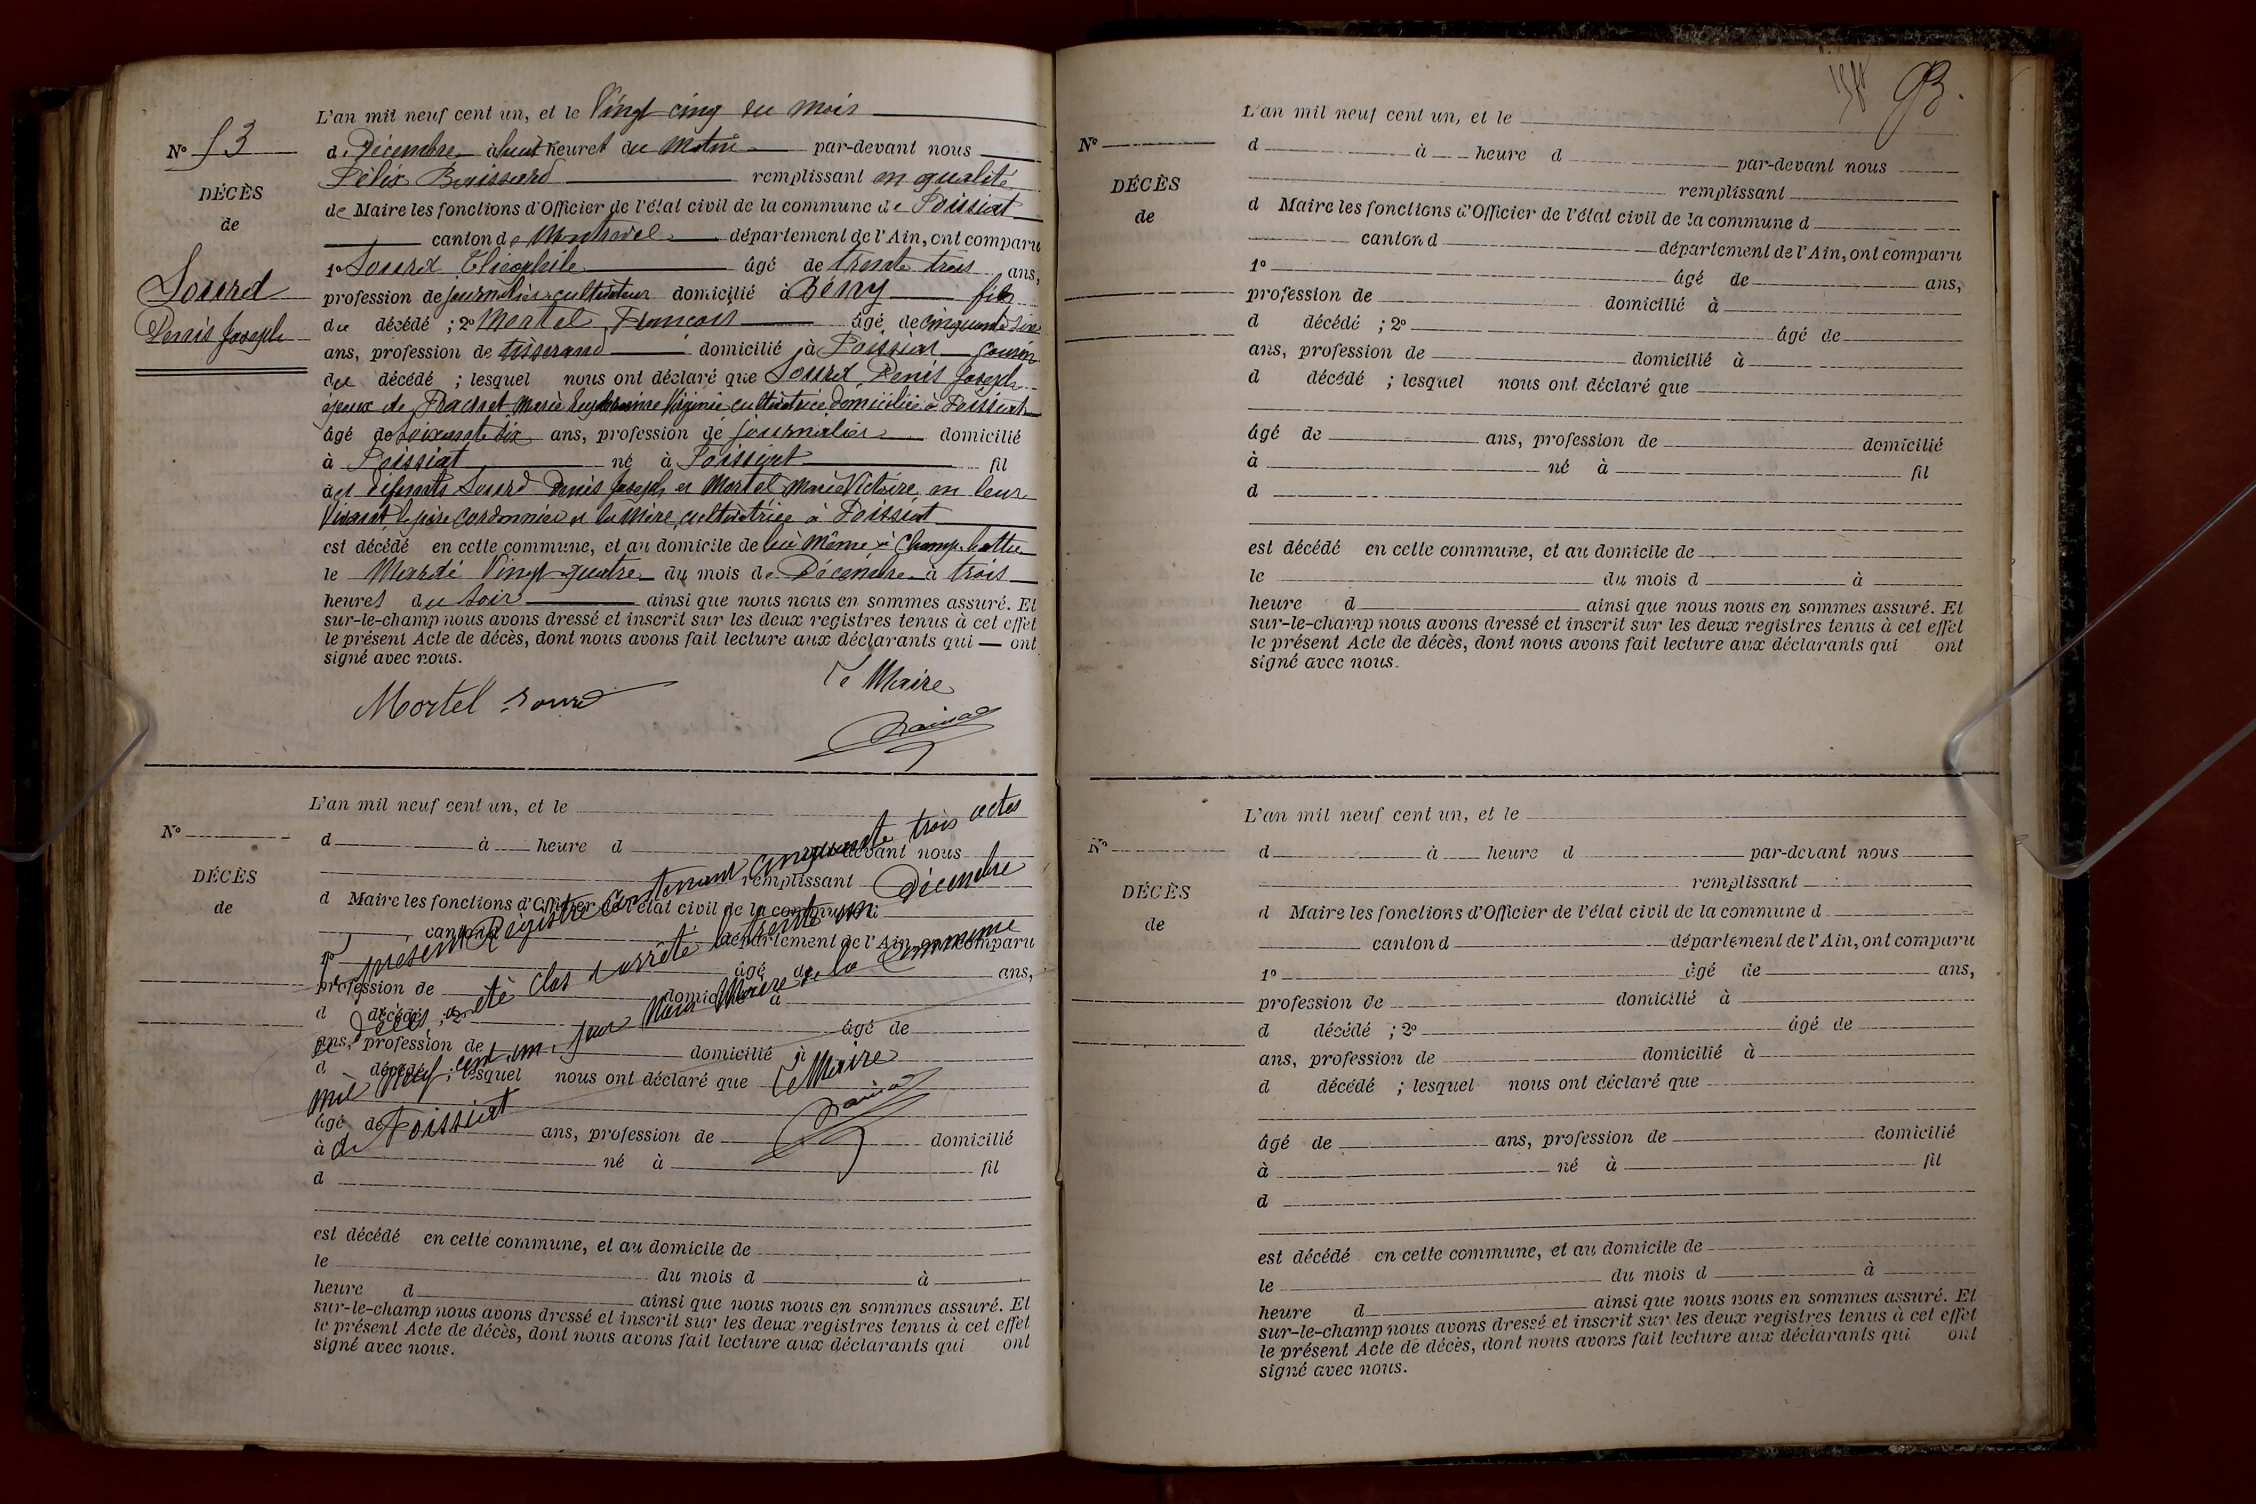 N° 53
DÉCÈS
de
Sourd
Denis Joseph
L'an mil neuf cent un, et le Vingt cinq du mois
de Décembre à huit heures du Matin par-devant nous
Félix remplissant en qualité
de Maire les fonctions d'Officier de l'état civil de la commune de Foissiat
canton de Montrevel département de l'Ain, ont comparu
1° Sourd Théophile âgé de trente trois ans,
profession de journalier cultivateur domicilié à Bény fils
du décédé ; 2° Mortel François âgé de cinquante
ans, profession de tisserand domicilié à Foissiat cousin
du décédé ; lesquel nous ont déclaré que Sourd Denis Joseph
époux de Marie Virginie, cultivatrice domiciliée à Foissiat
âgé de soixante dix ans, profession de journalier domicilié
à Foissiat né à Foissiat fil
des défunts Sourd Denis Joseph et Mortel Marie Victoire, en leur
Vivant le père cordonnier et la Mère cultivatrice à Foissiat
est décédé en cette commune, et au domicile de lui même à Champ
le Mardi Vingt quatre du mois de Décembre à trois
heures du soir ainsi que nous nous en sommes assuré. Et
sur-le-champ nous avons dressé et inscrit sur les deux registres tenus à cet effet
le présent Acte de décès, dont nous avons fait lecture aux déclarants qui — ont
signé avec nous.
Mortel Sourd
Le Maire
N°
DÉCÈS
de
L'an mil neuf cent un, et le
d à heure d par-devant nous
remplissant
d Maire les fonctions d'Officier de l'état civil de la commune d
canton d département de l'Ain, ont comparu
1° âgé de ans,
profession de domicilié à
d décédé ; 2° âgé de
ans, profession de domicilié à
d décédé ; lesquel nous ont déclaré que
âgé de ans, profession de domicilié
à né à fil
d
est décédé en cette commune, et au domicile de
le du mois d à
heure d ainsi que nous nous en sommes assuré. Et
sur-le-champ nous avons dressé et inscrit sur les deux registres tenus à cet effet
le présent Acte de décès, dont nous avons fait lecture aux déclarants qui ont
signé avec nous.
Le présent Régistre contenant cinquante trois actes
de Décès, a été clos et arrêté le trente un Décembre
mil Neuf cent un, par Nous Maire de la Commune
de Foissiat
Le Maire
93.
N°
DÉCÈS
de
L'an mil neuf cent un, et le
d à heure d par-devant nous
remplissant
d Maire les fonctions d'Officier de l'état civil de la commune d
canton d département de l'Ain, ont comparu
1° âgé de ans,
profession de domicilié à
d décédé ; 2° âgé de
ans, profession de domicilié à
d décédé ; lesquel nous ont déclaré que
âgé de ans, profession de domicilié
à né à fil
d
est décédé en cette commune, et au domicile de
le du mois d à
heure d ainsi que nous nous en sommes assuré. Et
sur-le-champ nous avons dressé et inscrit sur les deux registres tenus à cet effet
le présent Acte de décès, dont nous avons fait lecture aux déclarants qui ont
signé avec nous.
N°
DÉCÈS
de
L'an mil neuf cent un, et le
d à heure d par-devant nous
remplissant
d Maire les fonctions d'Officier de l'état civil de la commune d
canton d département de l'Ain, ont comparu
1° âgé de ans,
profession de domicilié à
d décédé ; 2° âgé de
ans, profession de domicilié à
d décédé ; lesquel nous ont déclaré que
âgé de ans, profession de domicilié
à né à fil
d
est décédé en cette commune, et au domicile de
le du mois d à
heure d ainsi que nous nous en sommes assuré. Et
sur-le-champ nous avons dressé et inscrit sur les deux registres tenus à cet effet
le présent Acte de décès, dont nous avons fait lecture aux déclarants qui ont
signé avec nous.